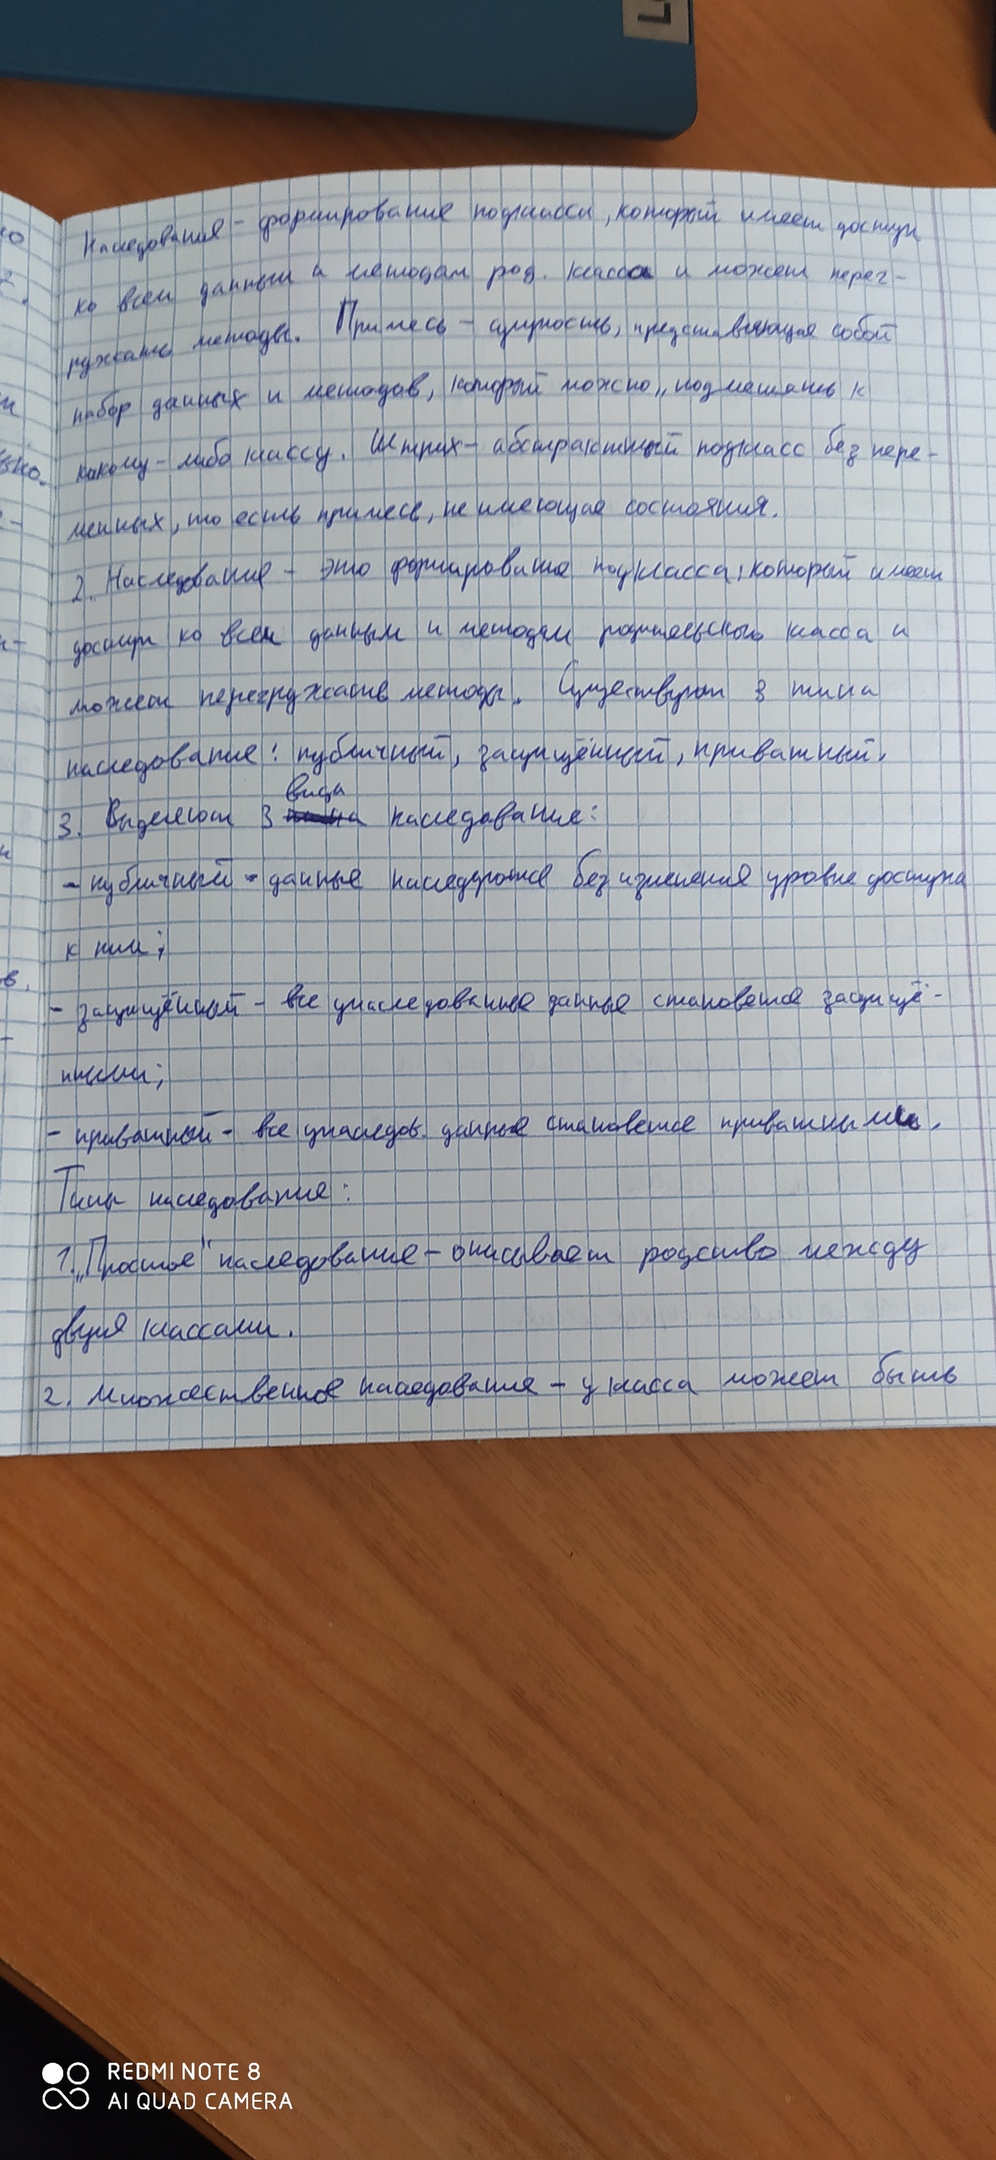 Наследование - формирование подкласса, который имеет доступ
ко всем данным и методам род. класса и может перег-
ружать методы. Примесь - сущность, представляющая собой
набор данных и методов, который можно „подмешать к
какому-либо классу. Штрих - абстрактный подкласс без пере-
менных, то есть примесь, не имеющая состояния.
2. Наследование - это формирование подкласса, который имеет
доступ ко всем данным и методам родительского класса и
может перегружать методы. Существуют 3 типа
наследование: публичный, защищённый, приватный.
вида
3. Выделяют 3 наследование:
- публичный - данные наследуются без изменения уровня доступа
к ним;
- защищённый - все унаследованные данные становятся защищё-
нными;
- приватный - все унаследов. данные становятся приватными.
Типы наследование:
1. „Простое" наследование - описывает родство между
двумя классами.
2. Множественное наследование - у класса может быть
REDMI NOTE 8
AI QUAD CAMERA